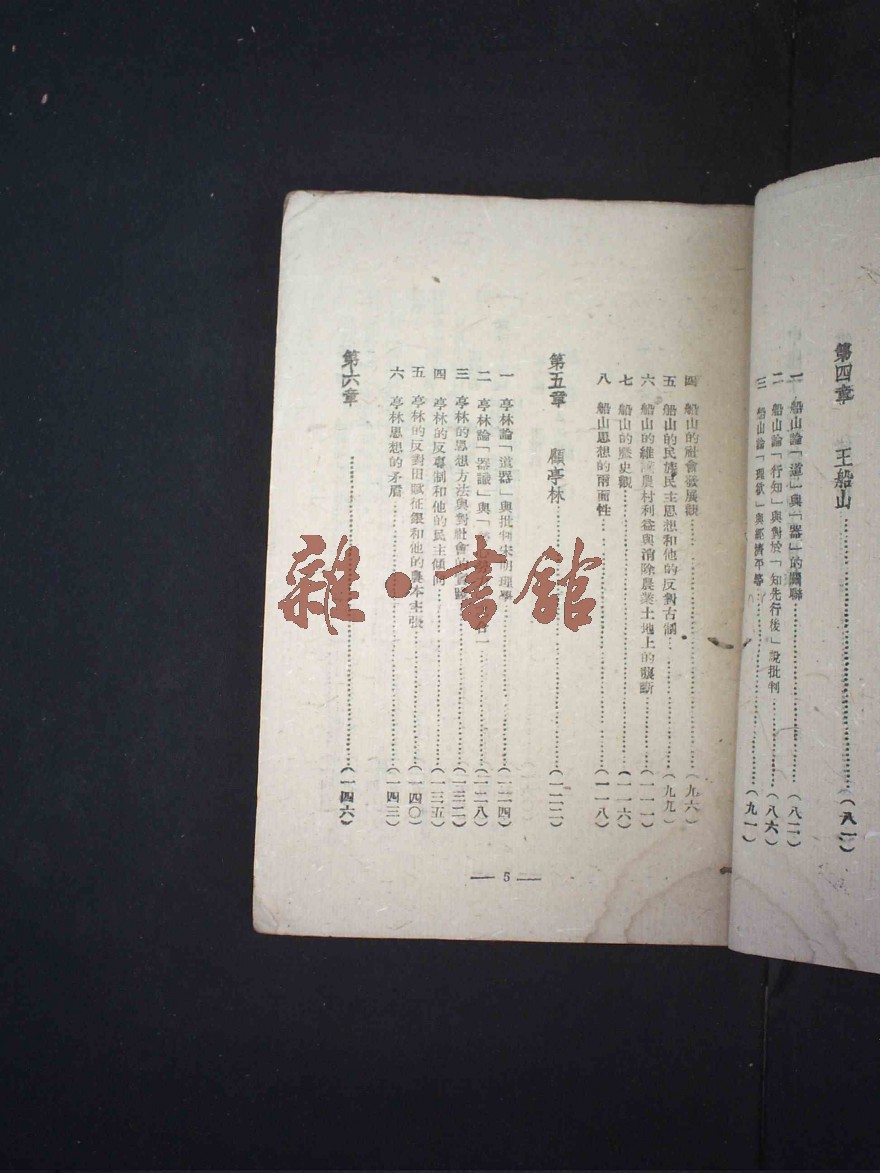 第四章　王船山……(八一)
一　船山論「道」與「器」的關聯……(八二)
二　船山論「行知」與對於「知先行後」說批判……(八六)
三　船山論「理欲」與經濟平等……(九一)
四　船山的社會發展觀……(九六)
五　船山的民族民主思想和他的反對古制……(九九)
六　船山的維護農村利益與消除農業土地上的壟斷……(一一一)
七　船山的歷史觀……(一一六)
八　船山思想的兩面性……(一一八)
第五章　顧亭林……(一二二)
一　亭林論「道器」與批判宋明理學……(一二四)
二　亭林論「器識」與「……合一……(一二八)
三　亭林的思想方法與對社會的……(一三二)
四　亭林的反專制和他的民主傾向……(一三五)
五　亭林的反對田賦征銀和他的農本主張……(一四〇)
六　亭林思想的矛盾……(一四三)
第六章　……(一四六)
— 5 —
雜·書館